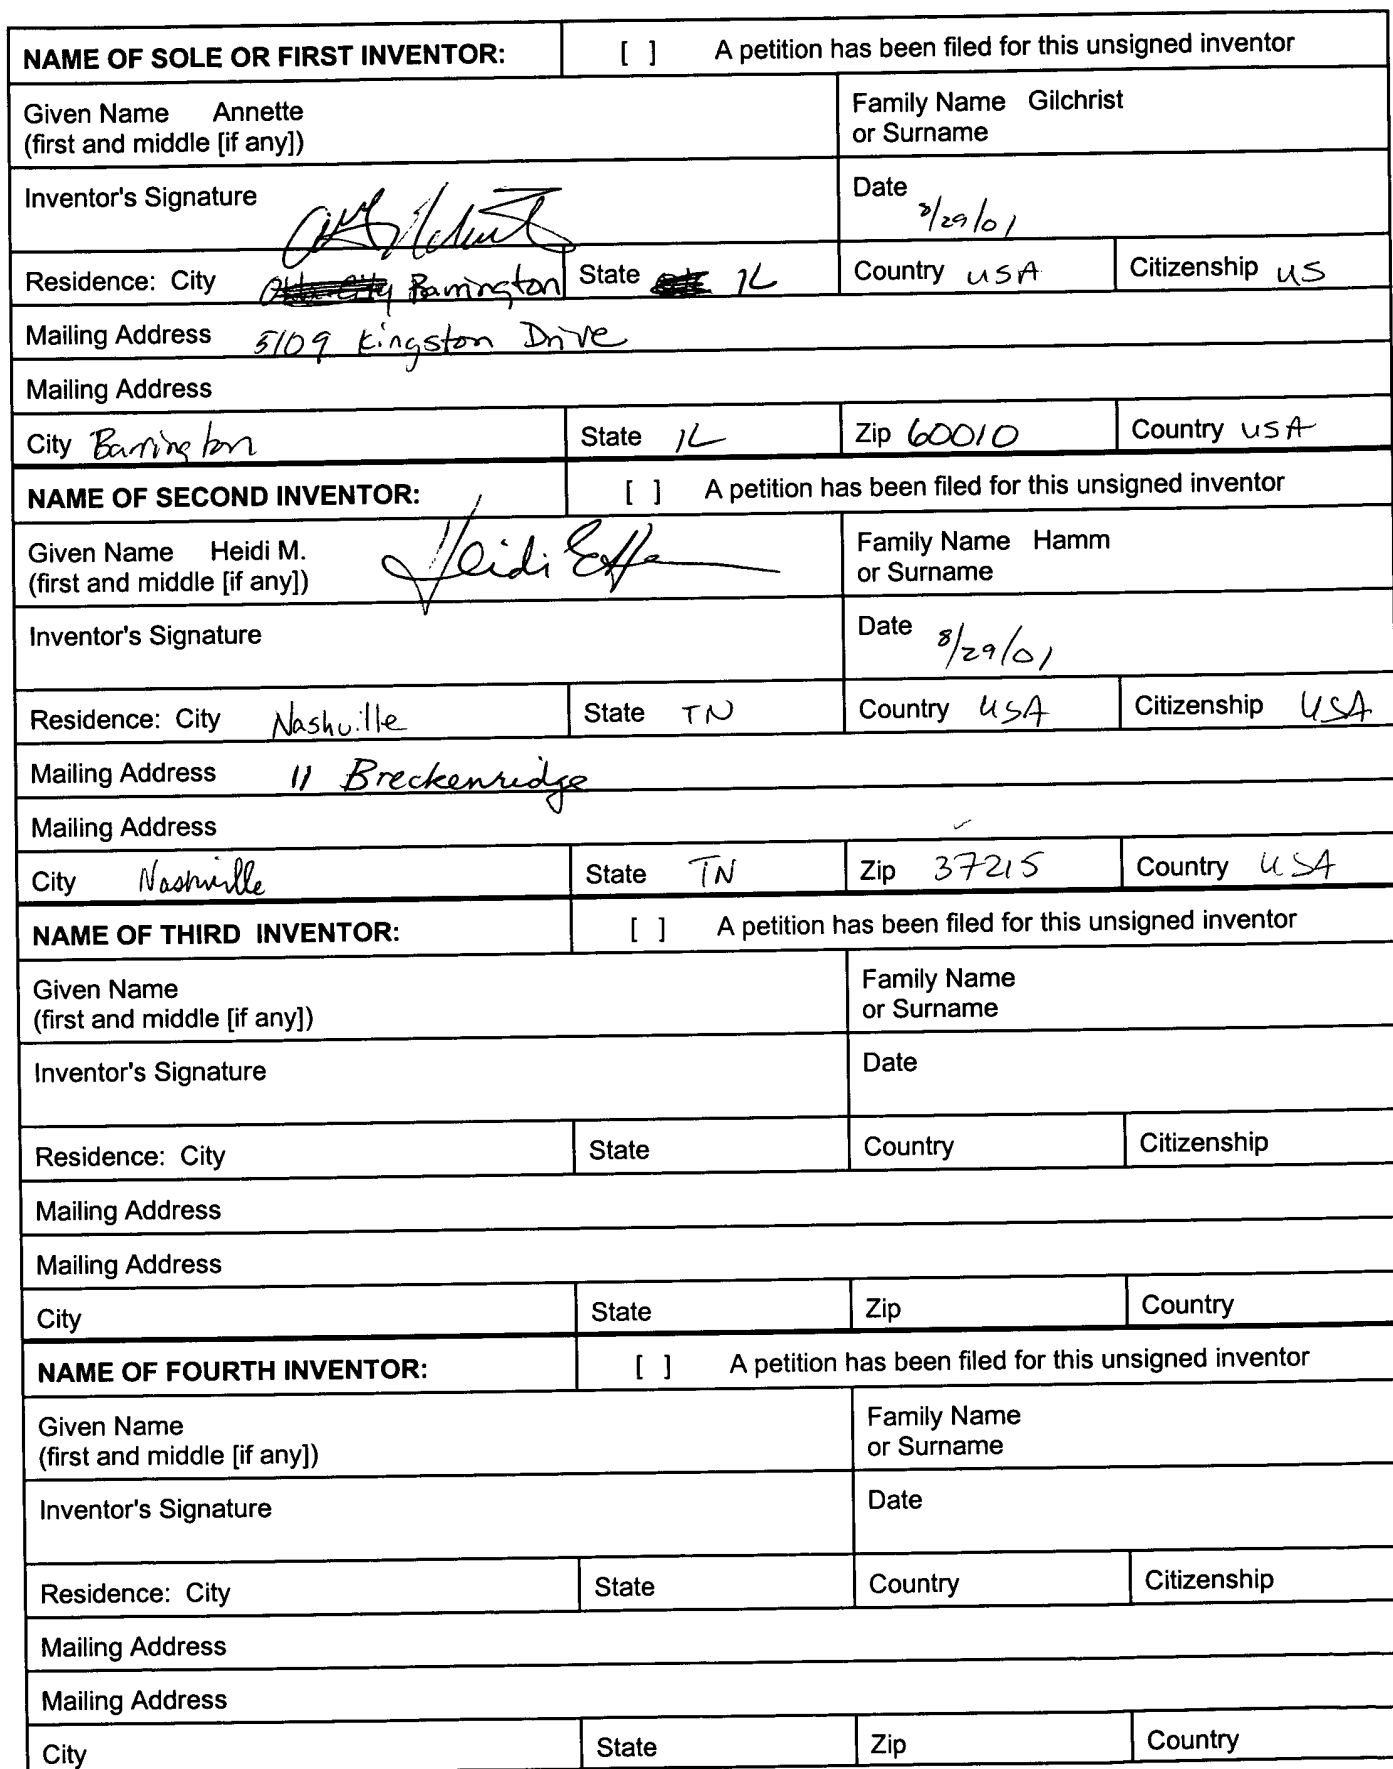 NAME OF SOLE OR FIRST INVENTOR: [ ] A petition has been filed for this unsigned inventor
Given Name Annette Family Name Gilchrist
(first and middle [if any]) or Surname
Inventor's Signature Date 8/29/01
Residence: City Barrington State IL Country USA Citizenship US
Mailing Address 5109 Kingston Drive
Mailing Address
City Barrington State IL Zip 60010 Country USA
NAME OF SECOND INVENTOR: [ ] A petition has been filed for this unsigned inventor
Given Name Heidi M. Heidi Family Name Hamm
(first and middle [if any]) or Surname
Inventor's Signature Date 8/29/01
Residence: City Nashville State TN Country USA Citizenship USA
Mailing Address 11 Breckenridge
Mailing Address
City Nashville State TN Zip 37215 Country USA
NAME OF THIRD INVENTOR: [ ] A petition has been filed for this unsigned inventor
Given Name Family Name
(first and middle [if any]) or Surname
Inventor's Signature Date
Residence: City State Country Citizenship
Mailing Address
Mailing Address
City State Zip Country
NAME OF FOURTH INVENTOR: [ ] A petition has been filed for this unsigned inventor
Given Name Family Name
(first and middle [if any]) or Surname
Inventor's Signature Date
Residence: City State Country Citizenship
Mailing Address
Mailing Address
City State Zip Country